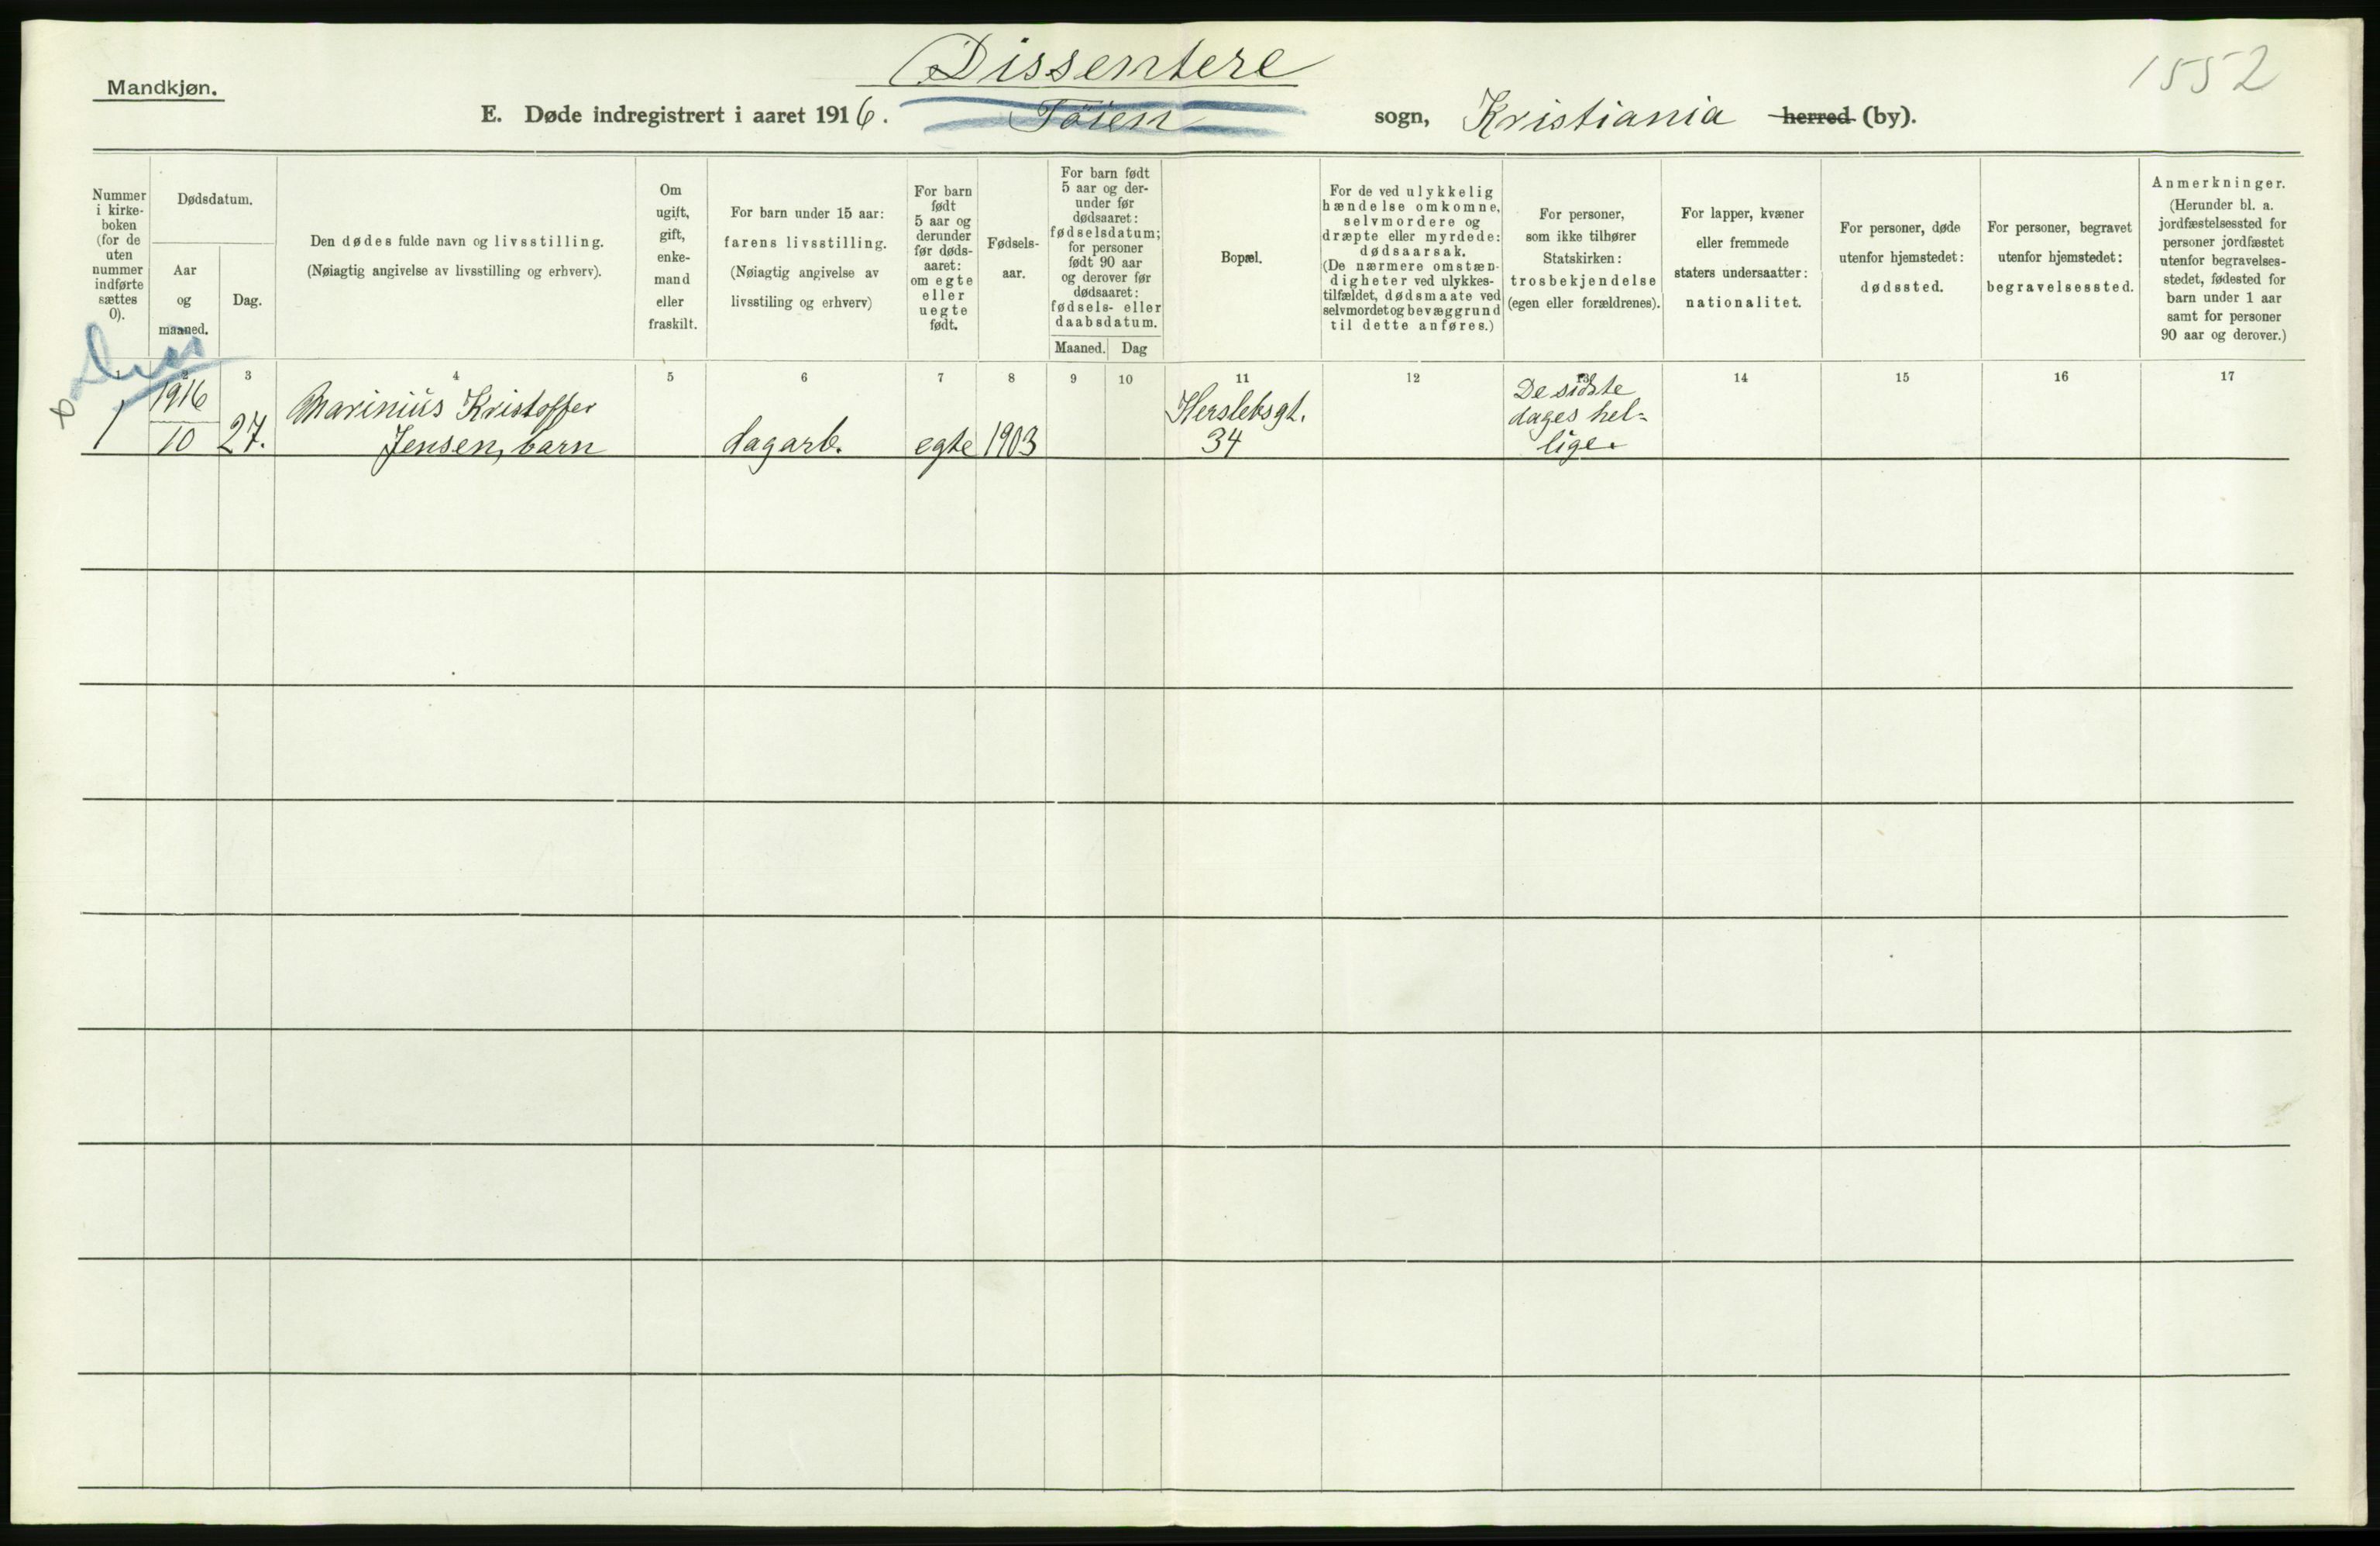 Dissentere
1552
Mandkjøn.
E. Døde indregistrert i aaret 1916. Töien sogn, Kristiania herred (by).
Nummer
i kirke-
boken
(for de
uten
nummer
indførte
sættes
0).
Dødsdatum.
Aar
og
maaned.
Dag.
Den dødes fulde navn og livsstilling.
(Nøiagtig angivelse av livsstilling og erhverv).
Om
ugift,
gift,
enke-
mand
eller
fraskilt.
For barn under 15 aar:
farens livsstilling.
(Nøiagtig angivelse av
livsstiling og erhverv)
For barn
født
5 aar og
derunder
før døds-
aaret:
om egte
eller
uegte
født.
Fødsels-
aar.
For barn født
5 aar og der-
under før
dødsaaret:
fødselsdatum;
for personer
født 90 aar
og derover før
dødsaaret:
fødsels- eller
daabsdatum.
Maaned. Dag
Bopæl.
For de ved ulykkelig
hændelse omkomne,
selvmordere og
dræpte eller myrdede:
dødsaarsak.
(De nærmere omstæn-
digheter ved ulykkes-
tilfældet, dødsmaate ved
selvmordet og bevæggrund
til dette anføres.)
For personer,
som ikke tilhører
Statskirken:
trosbekjendelse
(egen eller forældrenes).
For lapper, kvæner
eller fremmede
staters undersaatter:
nationalitet.
For personer, døde
utenfor hjemstedet:
dødssted.
For personer, begravet
utenfor hjemstedet:
begravelsessted.
Anmerkninger.
(Herunder bl. a.
jordfæstelsessted for
personer jordfæstet
utenfor begravelses-
stedet, fødested for
barn under 1 aar
samt for personer
90 aar og derover.)
Diss
1 2 3 4 5 6 7 8 9 10 11 12 13 14 15 16 17
1 1916
10 27. Marinius Kristoffer
Jensen, barn dagarb. egte 1903 Herslebsgt.
34 De sidste
dages hel-
lige.